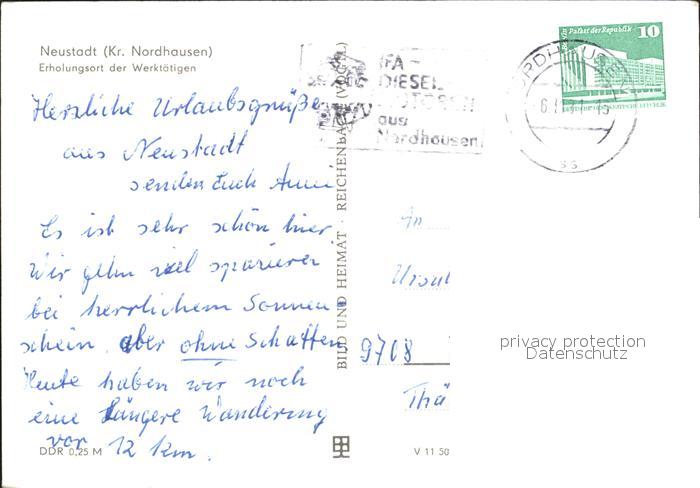 Neustadt (Kr. Nordhausen)
Erholungsort der Werktätigen
Herzliche Urlaubsgrüße
aus Neustadt
senden Euch
Es ist sehr schön hier
Wir gehn viel spazieren
bei herrlichem Sonnen
schein, aber ohne Schatten
Heute haben wir noch
eine längere Wanderung
vor 12 km.
DDR 0,25 M
BILD UND HEIMAT · REICHENBACH (VOGTL)
IFA-
DIESEL
MOTOREN
aus
Nordhausen
Palast der Republik 10
NORDHAUSEN
An
Ursul
9708
Thä
V 11 50
privacy protection
Datenschutz